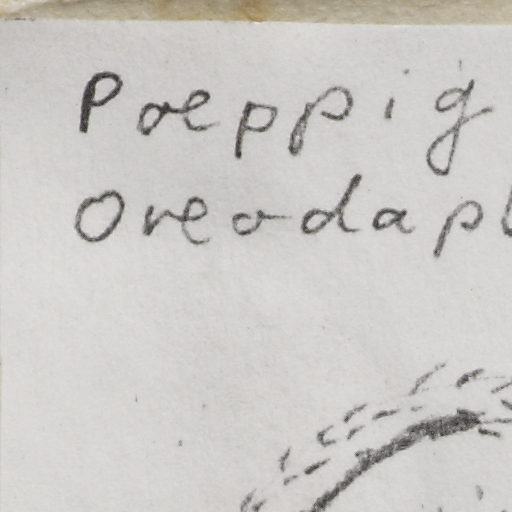 Poeppig
Oreodaph